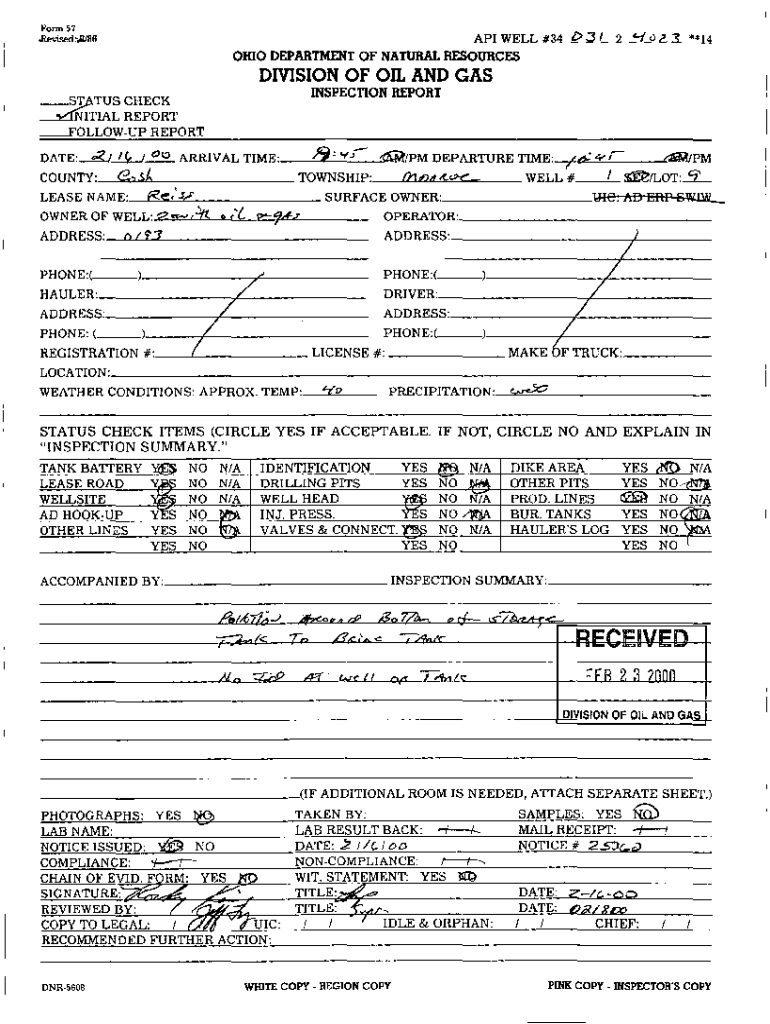 Form 57
Revised 2/86
API WELL #34 031 2 4023 **14
OHIO DEPARTMENT OF NATURAL RESOURCES
DIVISION OF OIL AND GAS
INSPECTION REPORT
STATUS CHECK
✓ INITIAL REPORT
FOLLOW-UP REPORT
DATE: 2/16/00 ARRIVAL TIME: 9:45 AM/PM DEPARTURE TIME: 10:45 AM/PM
COUNTY: Cosh TOWNSHIP: Monroe WELL # 1 SEC/LOT: 9
LEASE NAME: Reiss SURFACE OWNER: UIC: AD ERP SWIW
OWNER OF WELL: Zenith oil & gas OPERATOR:
ADDRESS: 0193 ADDRESS:
PHONE:( ) PHONE:( )
HAULER: DRIVER:
ADDRESS: ADDRESS:
PHONE: ( ) PHONE:( )
REGISTRATION #: LICENSE #: MAKE OF TRUCK:
LOCATION:
WEATHER CONDITIONS: APPROX. TEMP: 40 PRECIPITATION: wet
STATUS CHECK ITEMS (CIRCLE YES IF ACCEPTABLE. IF NOT, CIRCLE NO AND EXPLAIN IN
"INSPECTION SUMMARY."
TANK BATTERY YES NO N/A IDENTIFICATION YES NO N/A DIKE AREA YES NO N/A
LEASE ROAD YES NO N/A DRILLING PITS YES NO N/A OTHER PITS YES NO N/A
WELLSITE YES NO N/A WELL HEAD YES NO N/A PROD. LINES YES NO N/A
AD HOOK-UP YES NO N/A INJ. PRESS. YES NO N/A BUR. TANKS YES NO N/A
OTHER LINES YES NO N/A VALVES & CONNECT. YES NO N/A HAULER'S LOG YES NO N/A
YES NO YES NO YES NO
ACCOMPANIED BY: INSPECTION SUMMARY:
Pollution Around Bottom of storage
Tank To Brine Tank
RECEIVED
No I.D AT well or Tank
FEB 23 2000
DIVISION OF OIL AND GAS
(IF ADDITIONAL ROOM IS NEEDED, ATTACH SEPARATE SHEET.)
PHOTOGRAPHS: YES NO TAKEN BY: SAMPLES: YES NO
LAB NAME: LAB RESULT BACK: / / MAIL RECEIPT: / /
NOTICE ISSUED: YES NO DATE: 2/16/00 NOTICE # 25360
COMPLIANCE: / / NON-COMPLIANCE: / /
CHAIN OF EVID. FORM: YES NO WIT. STATEMENT: YES NO
SIGNATURE: TITLE: DATE: 2-16-00
REVIEWED BY: TITLE: Supr DATE: 021800
COPY TO LEGAL: / / UIC: / / IDLE & ORPHAN: / / CHIEF: / /
RECOMMENDED FURTHER ACTION:
DNR-5608 WHITE COPY - REGION COPY PINK COPY - INSPECTOR'S COPY